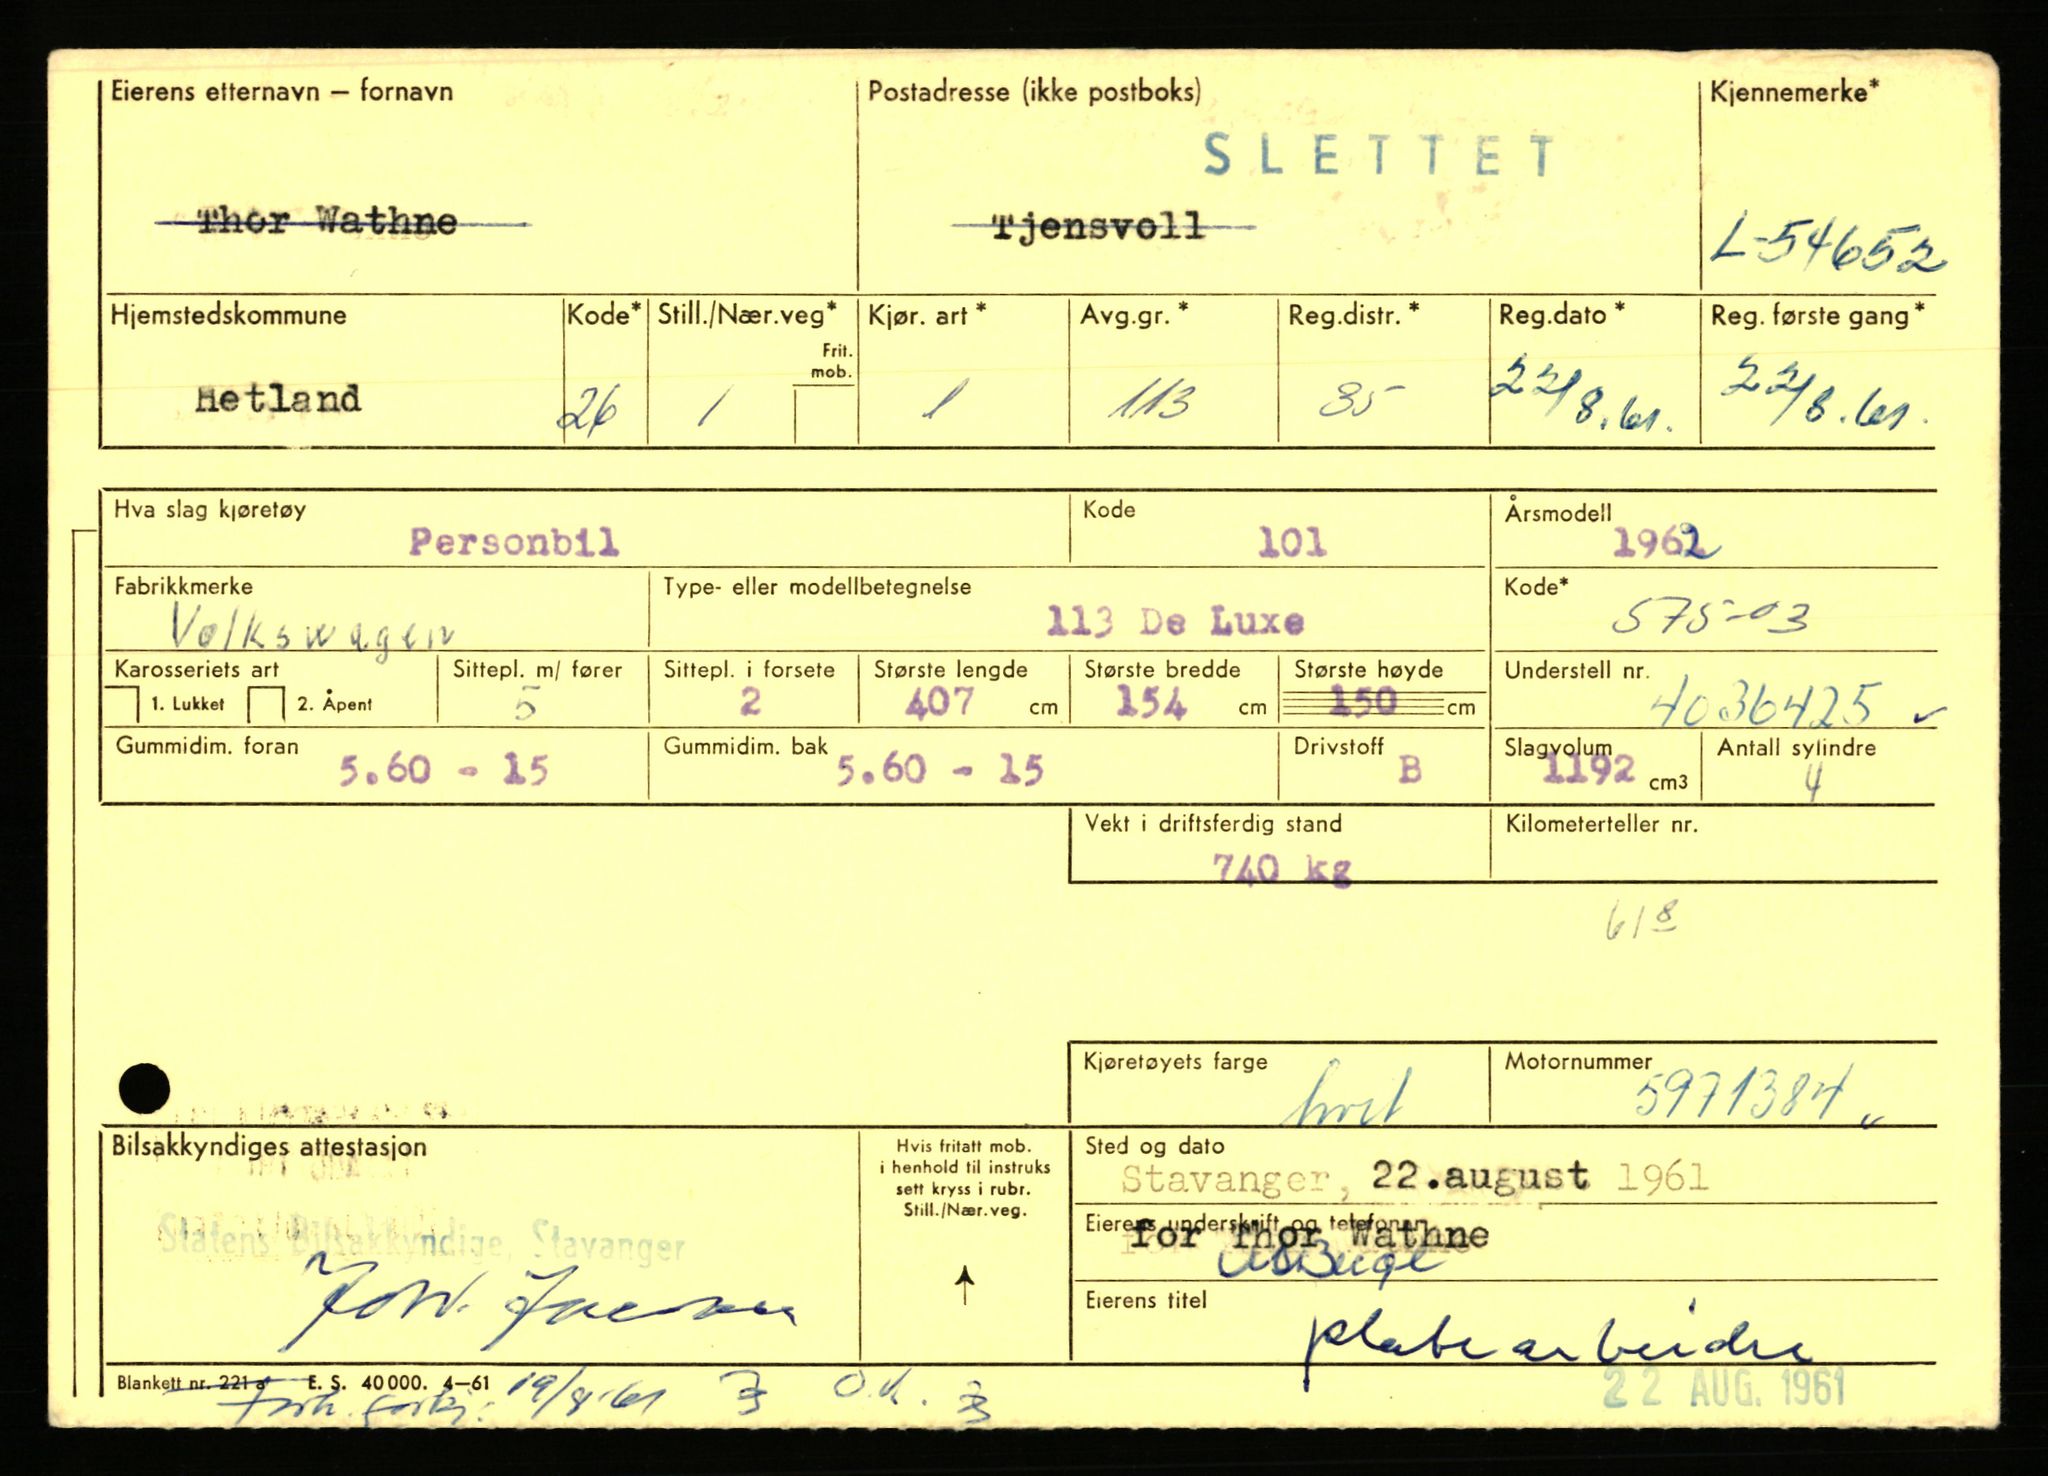 Eierens etternavn – fornavn Postadresse (ikke postboks) Kjennemerke*
SLETTET
Thor Wathne Tjensvoll L-54652
Hjemstedskommune Kode* Still./Nær.veg* Kjør. art* Avg.gr.* Reg.distr.* Reg.dato* Reg. første gang*
Frit.
mob.
Hetland 26 1 1 113 35 22/8.61. 22/8.61.
Hva slag kjøretøy Kode Årsmodell
Personbil 101 1962
Fabrikkmerke Type- eller modellbetegnelse Kode*
Volkswagen 113 De Luxe 575-03
Karosseriets art Sittepl. m/ fører Sittepl. i forsete Største lengde Største bredde Største høyde Understell nr.
1. Lukket 2. Åpent 5 2 407 cm 154 cm 150 cm 4036425
Gummidim. foran Gummidim. bak Drivstoff Slagvolum Antall sylindre
5.60 - 15 5.60 - 15 B 1192 cm3 4
Vekt i driftsferdig stand Kilometerteller nr.
740 kg
61 8
Kjøretøyets farge Motornummer
hvit 5971384
Bilsakkyndiges attestasjon Hvis fritatt mob. Sted og dato
i henhold til instruks
sett kryss i rubr.
Still./Nær.veg.
Stavanger, 22.august 1961
Eierens underskrift og telefonnr.
for Thor Wathne
Statens Bilsakkyndige, Stavanger
Eierens titel
platearbeider
Blankett nr. 221 a E. S. 40 000. 4–61
19/8-61 O.k.
22 AUG. 1961